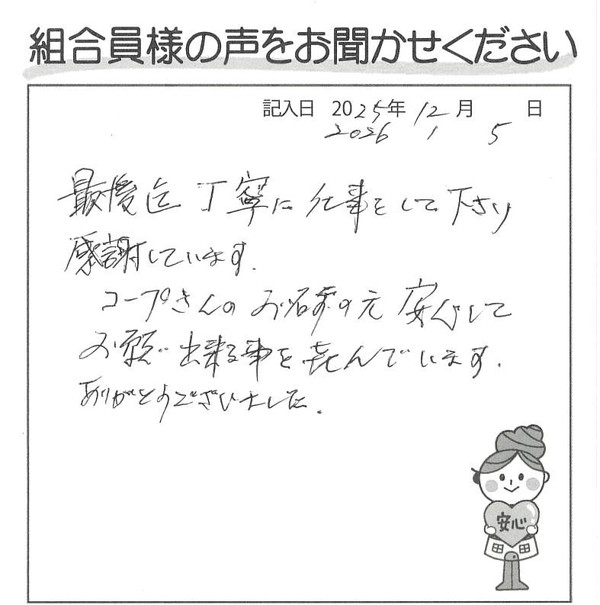 組合員様の声をお聞かせください
記入日 2025年 12月 日
2026 1 5
最後迄 丁寧に 仕事をして下さり
感謝しています.
コープさんの お名前の元 安心して
お願い出来る事を喜んでいます.
ありがとうございました.
安心